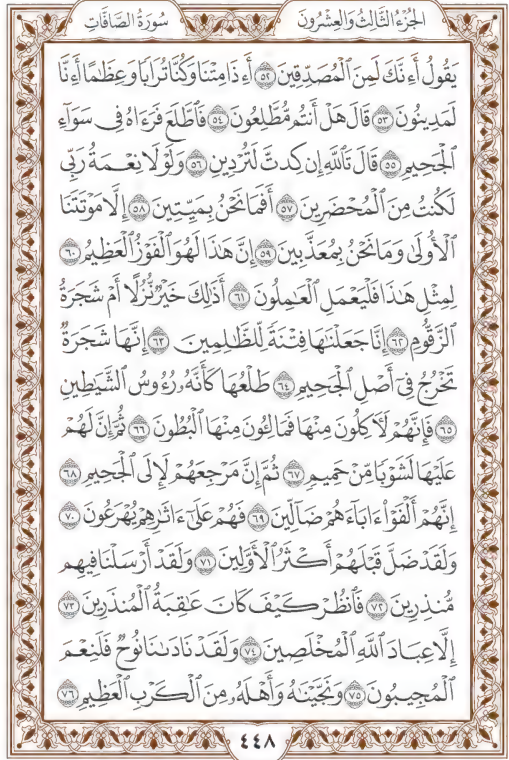 الجُزْءُ الثَّالِثُ وَالعِشْرُونَ
سُورَةُ الصَّافَّاتِ
يَقُولُ أَءِنَّكَ لَمِنَ ٱلْمُصَدِّقِينَ ٥٢ أَءِذَا مِتْنَا وَكُنَّا تُرَابًا وَعِظَٰمًا أَءِنَّا
لَمَدِينُونَ ٥٣ قَالَ هَلْ أَنتُم مُّطَّلِعُونَ ٥٤ فَٱطَّلَعَ فَرَءَاهُ فِى سَوَآءِ
ٱلْجَحِيمِ ٥٥ قَالَ تَٱللَّهِ إِن كِدتَّ لَتُرْدِينِ ٥٦ وَلَوْلَا نِعْمَةُ رَبِّى
لَكُنتُ مِنَ ٱلْمُحْضَرِينَ ٥٧ أَفَمَا نَحْنُ بِمَيِّتِينَ ٥٨ إِلَّا مَوْتَتَنَا
ٱلْأُولَىٰ وَمَا نَحْنُ بِمُعَذَّبِينَ ٥٩ إِنَّ هَٰذَا لَهُوَ ٱلْفَوْزُ ٱلْعَظِيمُ ٦٠
لِمِثْلِ هَٰذَا فَلْيَعْمَلِ ٱلْعَٰمِلُونَ ٦١ أَذَٰلِكَ خَيْرٌ نُّزُلًا أَمْ شَجَرَةُ
ٱلزَّقُّومِ ٦٢ إِنَّا جَعَلْنَٰهَا فِتْنَةً لِّلظَّٰلِمِينَ ٦٣ إِنَّهَا شَجَرَةٌ
تَخْرُجُ فِىٓ أَصْلِ ٱلْجَحِيمِ ٦٤ طَلْعُهَا كَأَنَّهُۥ رُءُوسُ ٱلشَّيَٰطِينِ
٦٥ فَإِنَّهُمْ لَـَٔاكِلُونَ مِنْهَا فَمَالِـُٔونَ مِنْهَا ٱلْبُطُونَ ٦٦ ثُمَّ إِنَّ لَهُمْ
عَلَيْهَا لَشَوْبًا مِّنْ حَمِيمٍ ٦٧ ثُمَّ إِنَّ مَرْجِعَهُمْ لَإِلَى ٱلْجَحِيمِ ٦٨
إِنَّهُمْ أَلْفَوْا۟ ءَابَآءَهُمْ ضَآلِّينَ ٦٩ فَهُمْ عَلَىٰٓ ءَاثَٰرِهِمْ يُهْرَعُونَ ٧٠
وَلَقَدْ ضَلَّ قَبْلَهُمْ أَكْثَرُ ٱلْأَوَّلِينَ ٧١ وَلَقَدْ أَرْسَلْنَا فِيهِم
مُّنذِرِينَ ٧٢ فَٱنظُرْ كَيْفَ كَانَ عَٰقِبَةُ ٱلْمُنذَرِينَ ٧٣
إِلَّا عِبَادَ ٱللَّهِ ٱلْمُخْلَصِينَ ٧٤ وَلَقَدْ نَادَىٰنَا نُوحٌ فَلَنِعْمَ
ٱلْمُجِيبُونَ ٧٥ وَنَجَّيْنَٰهُ وَأَهْلَهُۥ مِنَ ٱلْكَرْبِ ٱلْعَظِيمِ ٧٦
٤٤٨